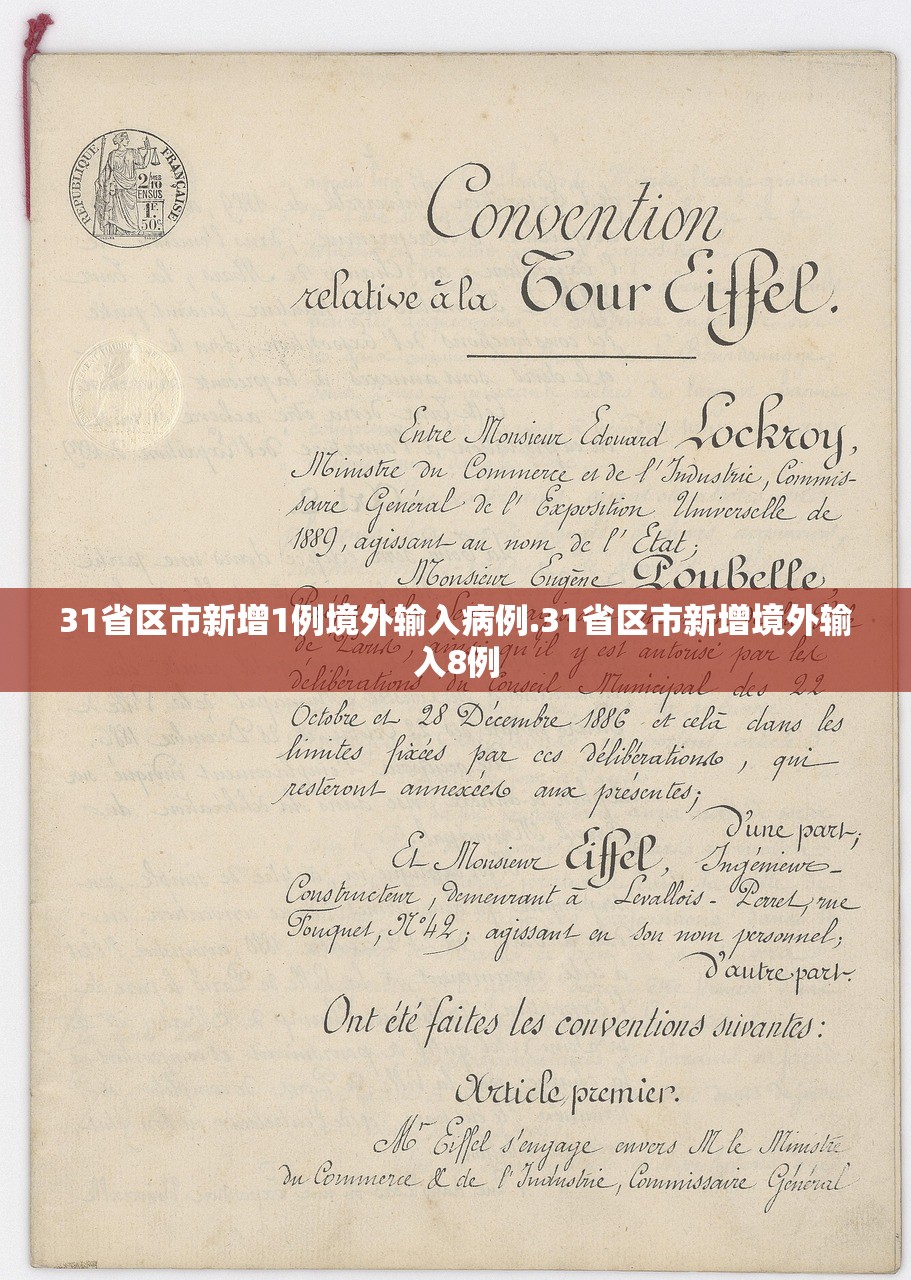 RÉPUBLIQUE FRANÇAISE
2/10
EN SUS
1F.
50c
Convention
relative à la Tour Eiffel.
Entre Monsieur Edouard Lockroy,
Ministre du Commerce et de l'Industrie, Commis-
saire Général de l'Exposition Universelle de
1889, agissant au nom de l'Etat;
Monsieur Eugène Poubelle
31省区市新增1例境外输入病例.31省区市新增境外输
入8例
de Paris, ainsi qu'il y est autorisé par les
délibérations du Conseil Municipal des 22
Octobre et 28 Décembre 1886 et celà dans les
limites fixées par ces délibérations, qui
resteront annexées aux présentes;
D'une part;
Et Monsieur Eiffel, Ingénieur-
Constructeur, demeurant à Levallois-Perret, rue
Fouquet, N°42; agissant en son nom personnel;
D'autre part.
Ont été faites les conventions suivantes:
Article premier.
Mr Eiffel s'engage envers M le Ministre
du Commerce & de l'Industrie, Commissaire Général